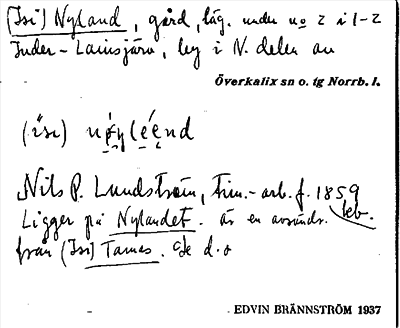 (Isi) Nyland, gård, läg. under no 2 i 1-2
Inder-Lansjärv, by i N. delen av
Överkalix sn o. tg Norrb. l.
Nils P. Lundström, f. 1859
Ligger på Nylandet. är en avsöndr.
från (Isi) Tames. Se d. o
EDVIN BRÄNNSTRÖM 1937